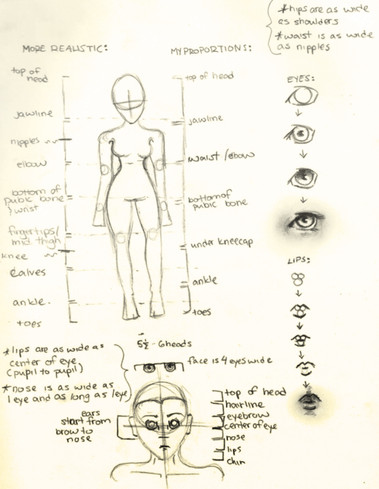 *hips are as wide
as shoulders
*waist is as wide
as nipples
MORE REALISTIC:
MY PROPORTIONS:
top of
head
jawline
nipples
elbow
bottom of
pubic bone
/wrist
fingertips/
mid thigh
knee
calves
ankle
toes
top of head
jawline
waist/elbow
bottom of
pubic bone
under kneecap
ankle
toes
EYES:
LIPS:
5½-6 heads
*lips are as wide as
center of eye
(pupil to pupil)
*nose is as wide as
1 eye and as long as 1 eye
face is 4 eyes wide
ears
start from
brow to
nose
top of head
hairline
eyebrow
center of eye
nose
lips
chin